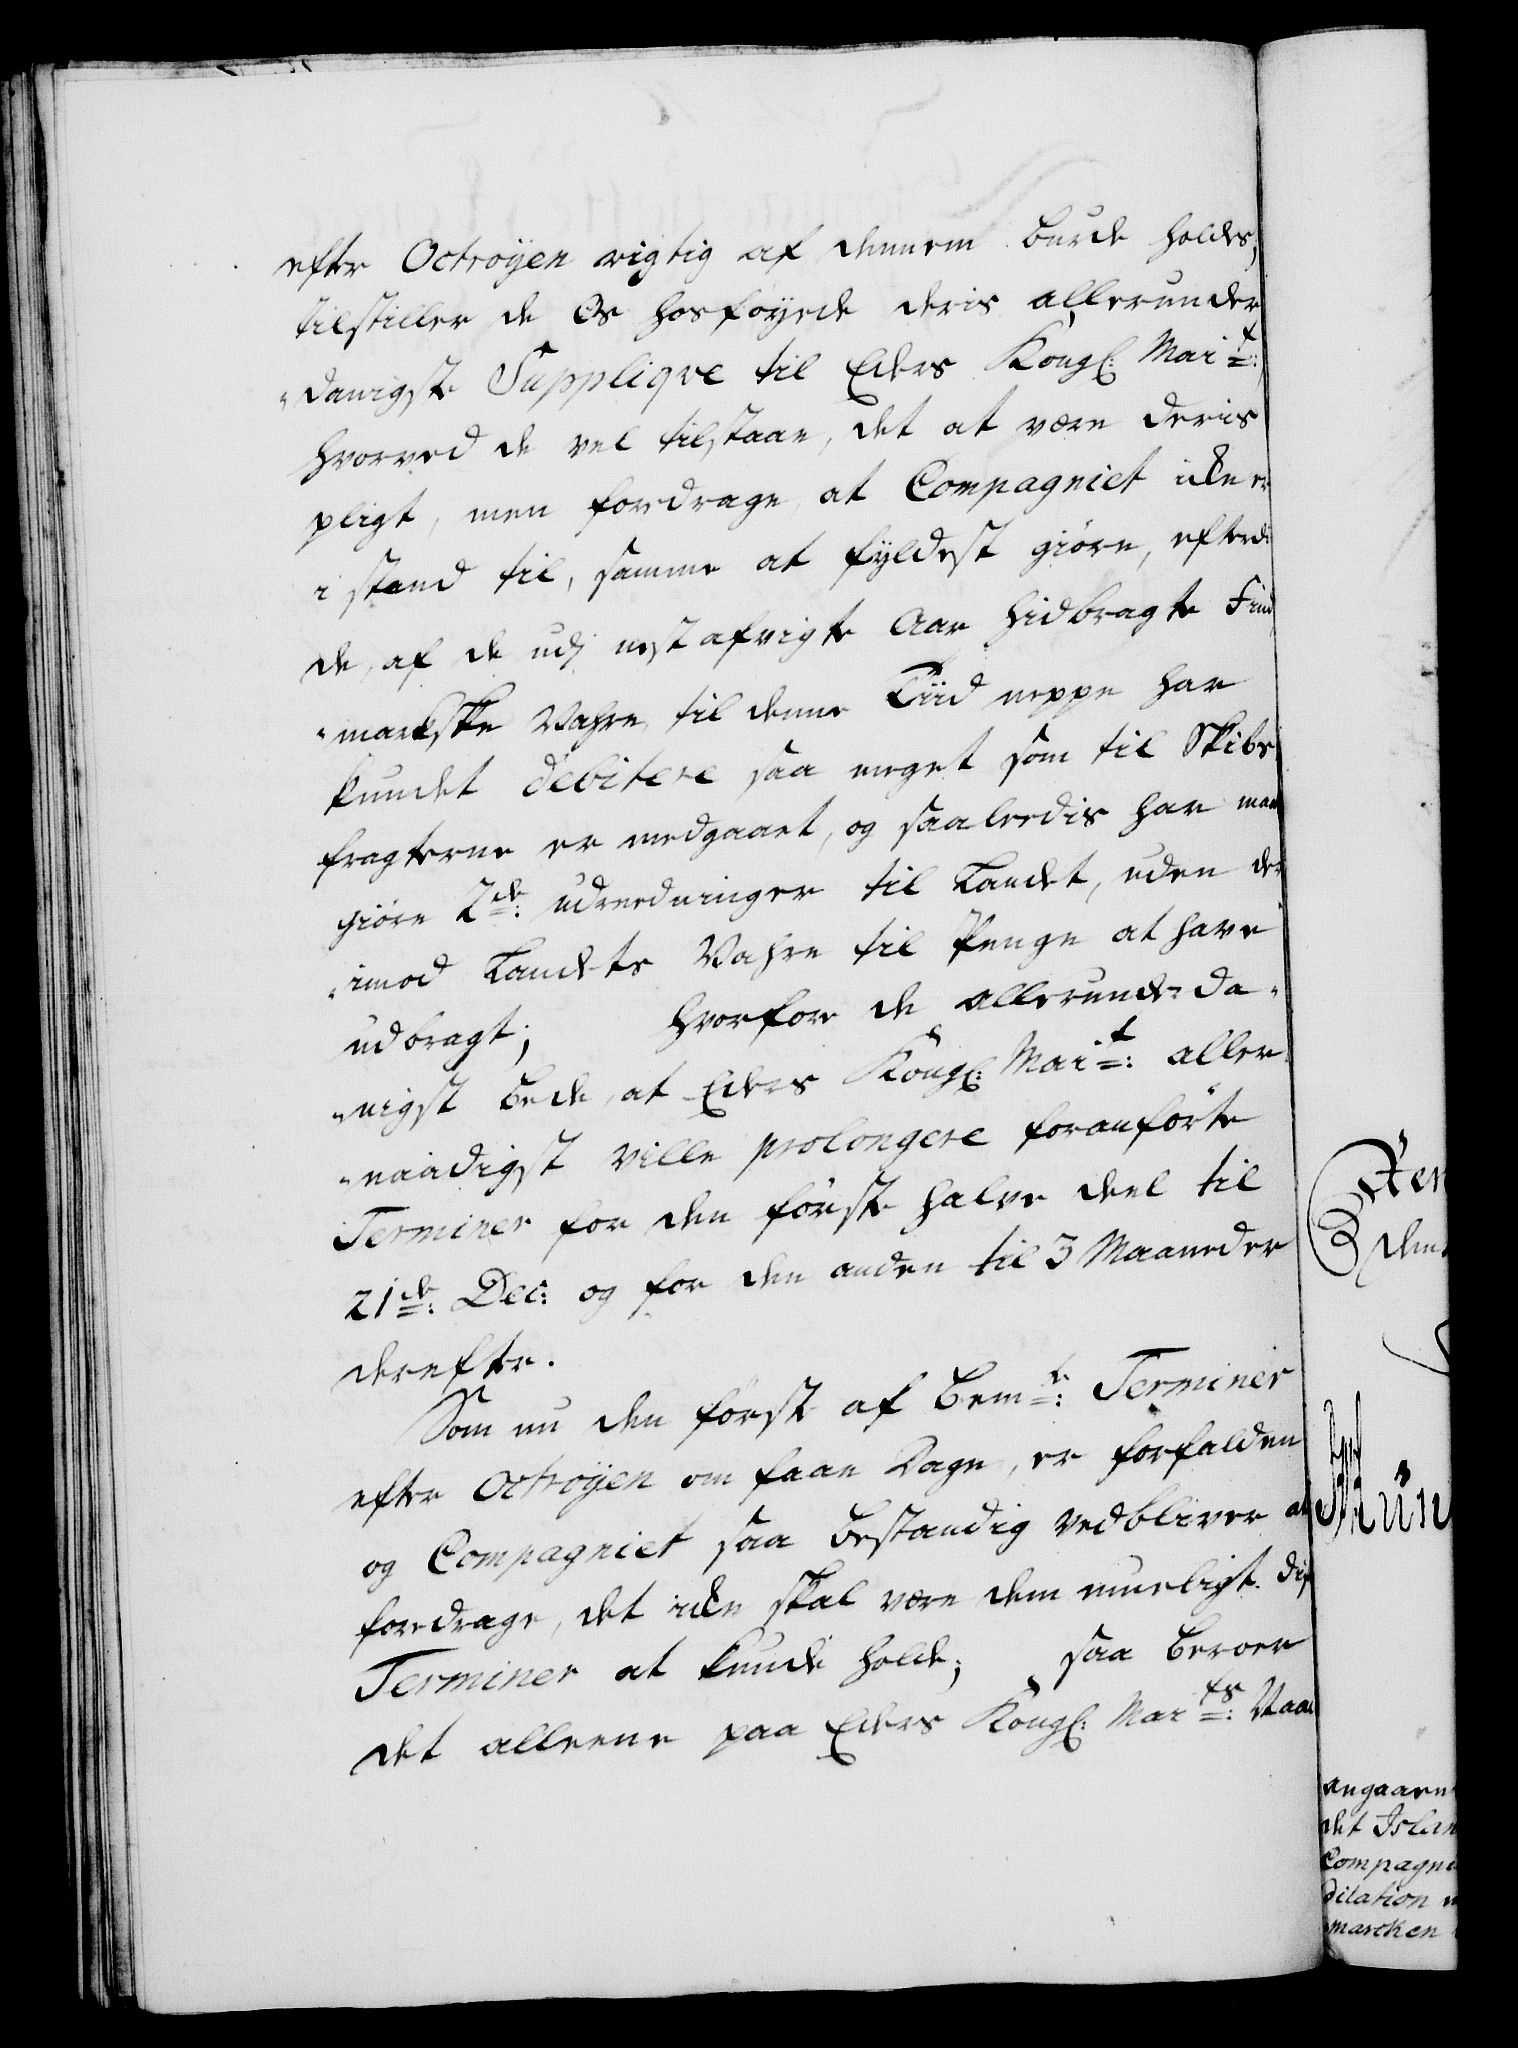 efter Octroÿen rigtig af dennem burde holdes,
tilstiller de Os hosføyede deris allerunder
"danigste Supplique til Eders Kongl: Mai.t:
hvorved de vel tilstaae, det at være deris
pligt, men fordrage at Compagniet icke er
i stand til, samme at fyldest giøre, efterdi
de, af de udj nest afvigte Aar hidbragte Fin
"markske Vahre, til denne Tiid neppe har
kundet debitere saa meget som til Skibs
fragterne er medgaaet, og saaleedis har maat
giøre 2de: udreedninger til Landet, uden der
"imod Landets Vahre til Penge at have
udbragt; hvorfore de allerunderda"
"nigst bede, at Eders Kongl: Mai.t: aller
"naadigst ville prolongere foranførte
Terminer for den første halve deel til
21de: Dec: og for den anden til 3 Maaneder
derefter.
Som nu den første af bem.te: Terminer
efter Octroÿen om faae Dage, er forfalden
og Compagniet saa bestandig vedbliver at
fordrage, det icke skal være dem mueligt diße
Terminer at kunde holde; saa beroer
det alleene paa Eders Kongl: Mai.ts: Naa
angaaen
det Islan
Compagni
dilation
marcken